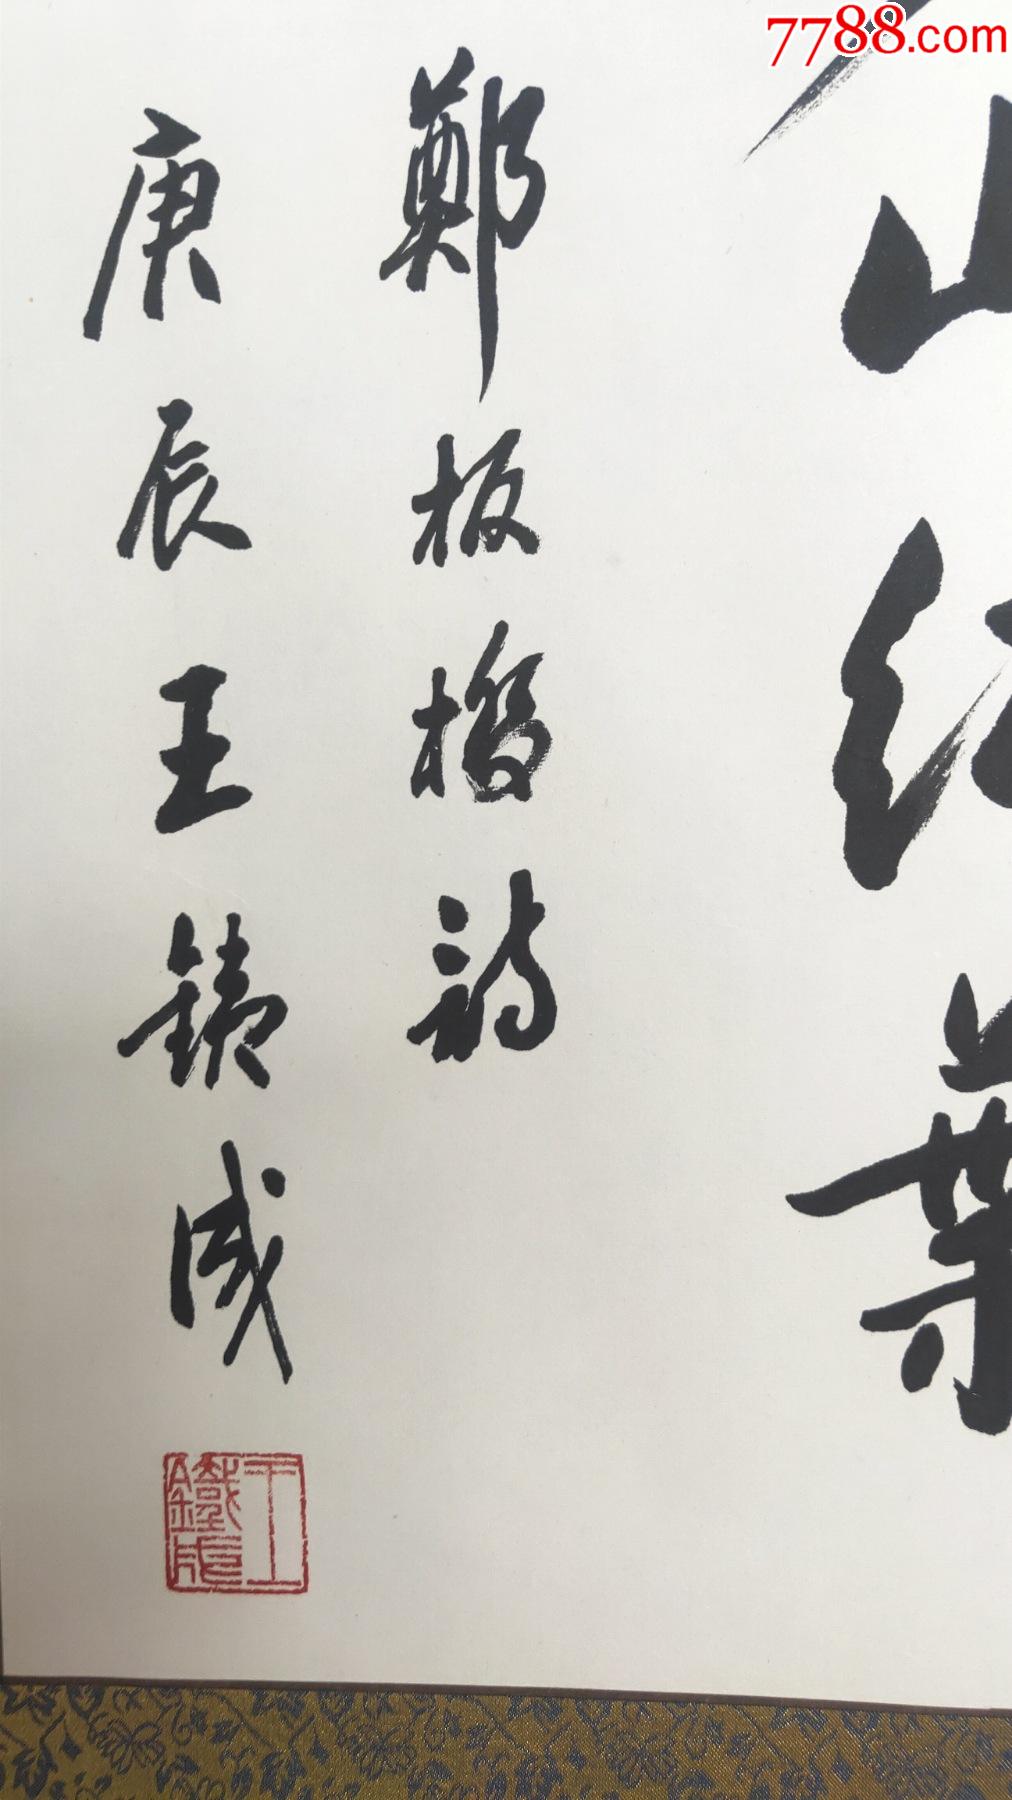 7788.com
山红葉
鄭板橋詩
庚辰王鉄成
王鐵成